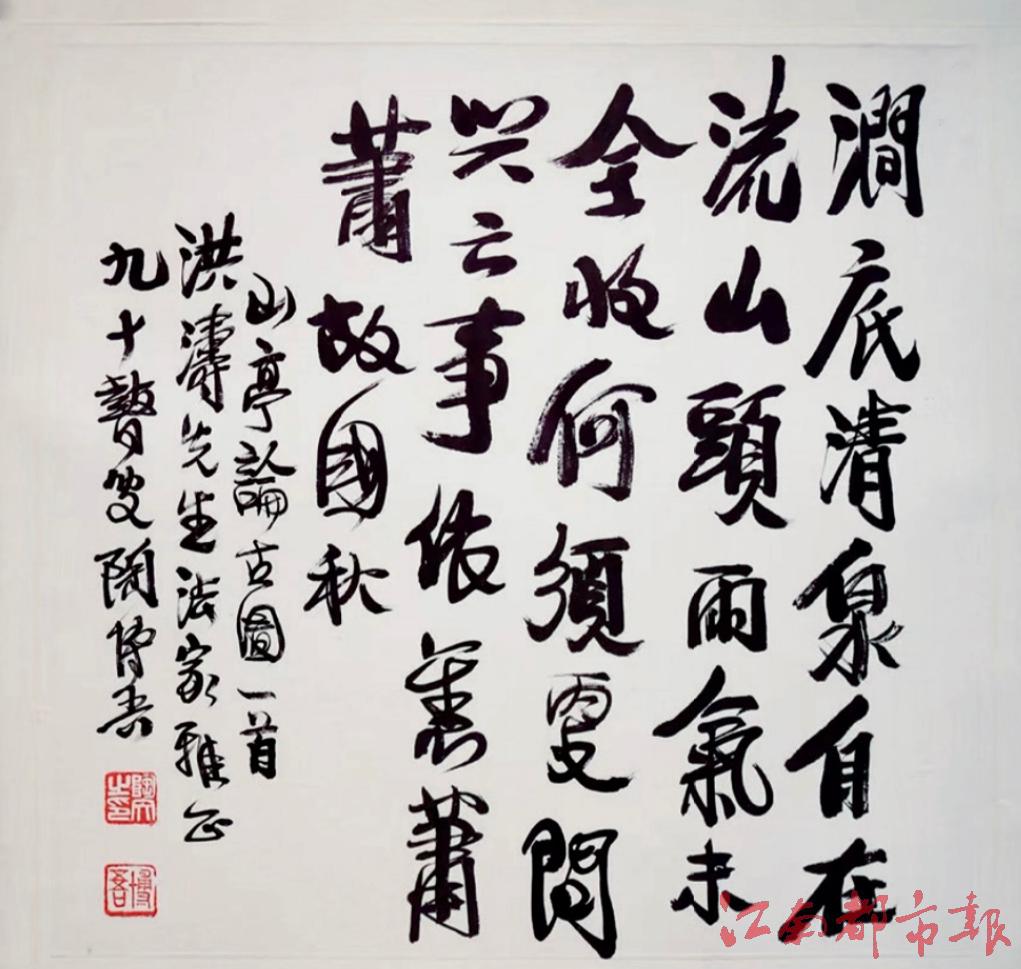 澗底清泉自在
流山頭雨氣未
全收何須更問
兴亡事依舊蕭
蕭故國秋
山亭論古圖一首
洪濤先生法家雅正
九十瞽叟陶博吾
博吾
江南都市報